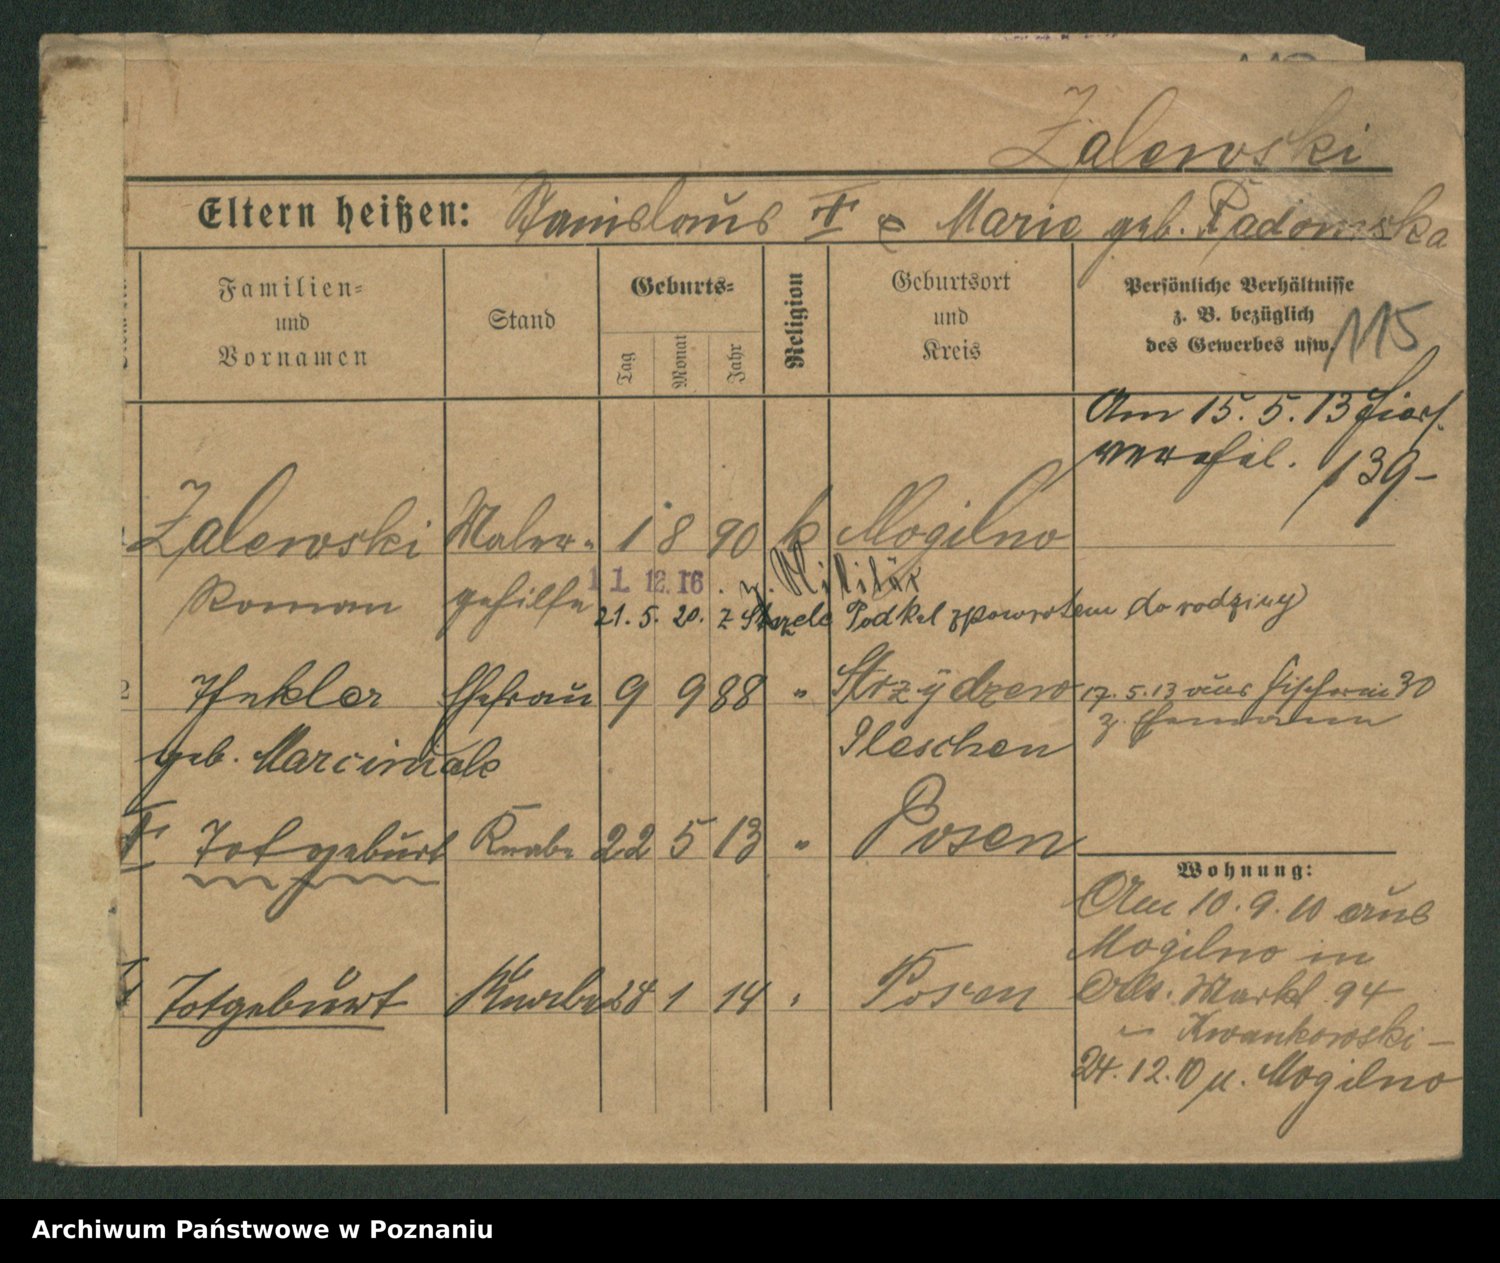 Zalewski
Eltern heißen: Stanislaus † & Marie geb. Radomska
Familien-
und
Vornamen
Stand
Geburts-
Tag
Monat
Jahr
Religion
Geburtsort
und
Kreis
Persönliche Verhältnisse
z. B. bezüglich
des Gewerbes usw.
115
Am 15. 5. 13
139-
Zalewski Maler- 1 8 90 k Mogilno
Roman gehilfe
11. 12. 16. z. Militär
21. 5. 20. z Strzelc Podkel zpowrotem do rodziny
2 Thekler Ehefrau 9 9 88 " Strzydzew 17. 5. 13 aus Fischerei 30
z. Ehemann
geb. Marciniak Pleschen
† Totgeburt Knabe 22 5 13 " Posen
Wohnung:
Am 10. 9. 10 aus
Mogilno in
Markt 94
Kwankowski -
24. 12. 10 n. Mogilno
† Totgeburt Knabe 28 1 14 " Posen
Archiwum Państwowe w Poznaniu